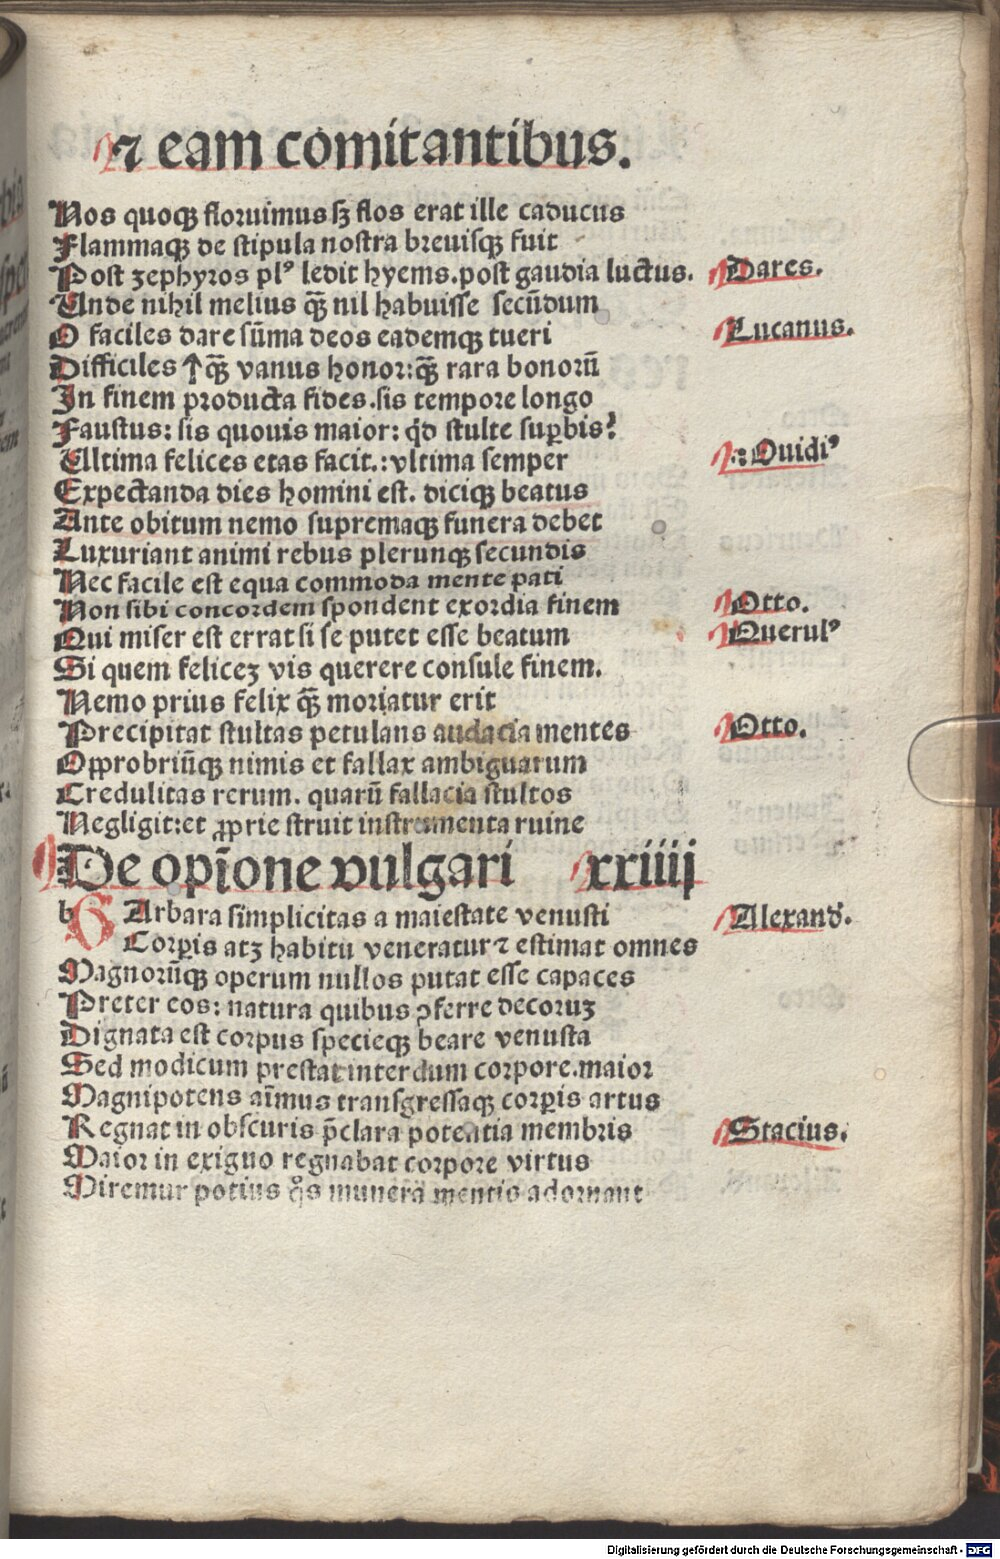 ⁊ eam comitantibus.
Nos quoqꝫ floruimus sꝫ flos erat ille caducus
Flammaqꝫ de stipula nostra breuisqꝫ fuit
Post zephyros plꝰ ledit hyems. post gaudia luctus. Dares.
Unde nihil melius qꝫ̄ nil habuisse secūdum
O faciles dare sūma deos eademqꝫ tueri Lucanus.
Difficiles ↑qꝫ̄ vanus honor: qꝫ̄ rara bonorū
In finem producta fides. sis tempore longo
Faustus: sis quouis maior: qd̓ stulte suꝑbis?
Ultima felices etas facit.: vltima semper .: Ouidiꝰ
Expectanda dies homini est. diciqꝫ beatus
Ante obitum nemo supremaqꝫ funera debet
Luxuriant animi rebus plerunqꝫ secundis
Nec facile est equa commoda mente pati
Non sibi concordem spondent exordia finem Otto.
Qui miser est errat si se putet esse beatum Querulꝰ
Si quem feliceꝫ vis querere consule finem.
Nemo prius felix qꝫ̄ moriatur erit
Precipitat stultas petulans audacia mentes Otto.
Opꝓbriūqꝫ nimis et fallax ambiguarum
Credulitas rerum. quarū fallacia stultos
Negligit: et ꝓprie struit instrumenta ruine
De opīone vulgari xxiiij
bBArbara simplicitas a maiestate venusti Alexand̓.
Corꝑis atꝫ habitu veneratur ⁊ estimat omnes
Magnorūqꝫ operum nullos putat esse capaces
Preter eos: natura quibus ꝓferre decoruꝫ
Dignata est corpus specieqꝫ beare venusta
Sed modicum prestat interdum corpore. maior
Magnipotens aīmus transgressaqꝫ corꝑis artus
Regnat in obscuris p̄clara potentia membris Stacius.
Maior in exiguo regnabat corpore virtus
Miremur potius q̊s munera mentis adornant
Digitalisierung gefördert durch die Deutsche Forschungsgemeinschaft - DFG